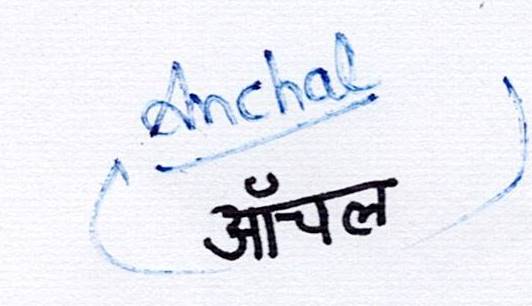 Anchal
ऑंचल